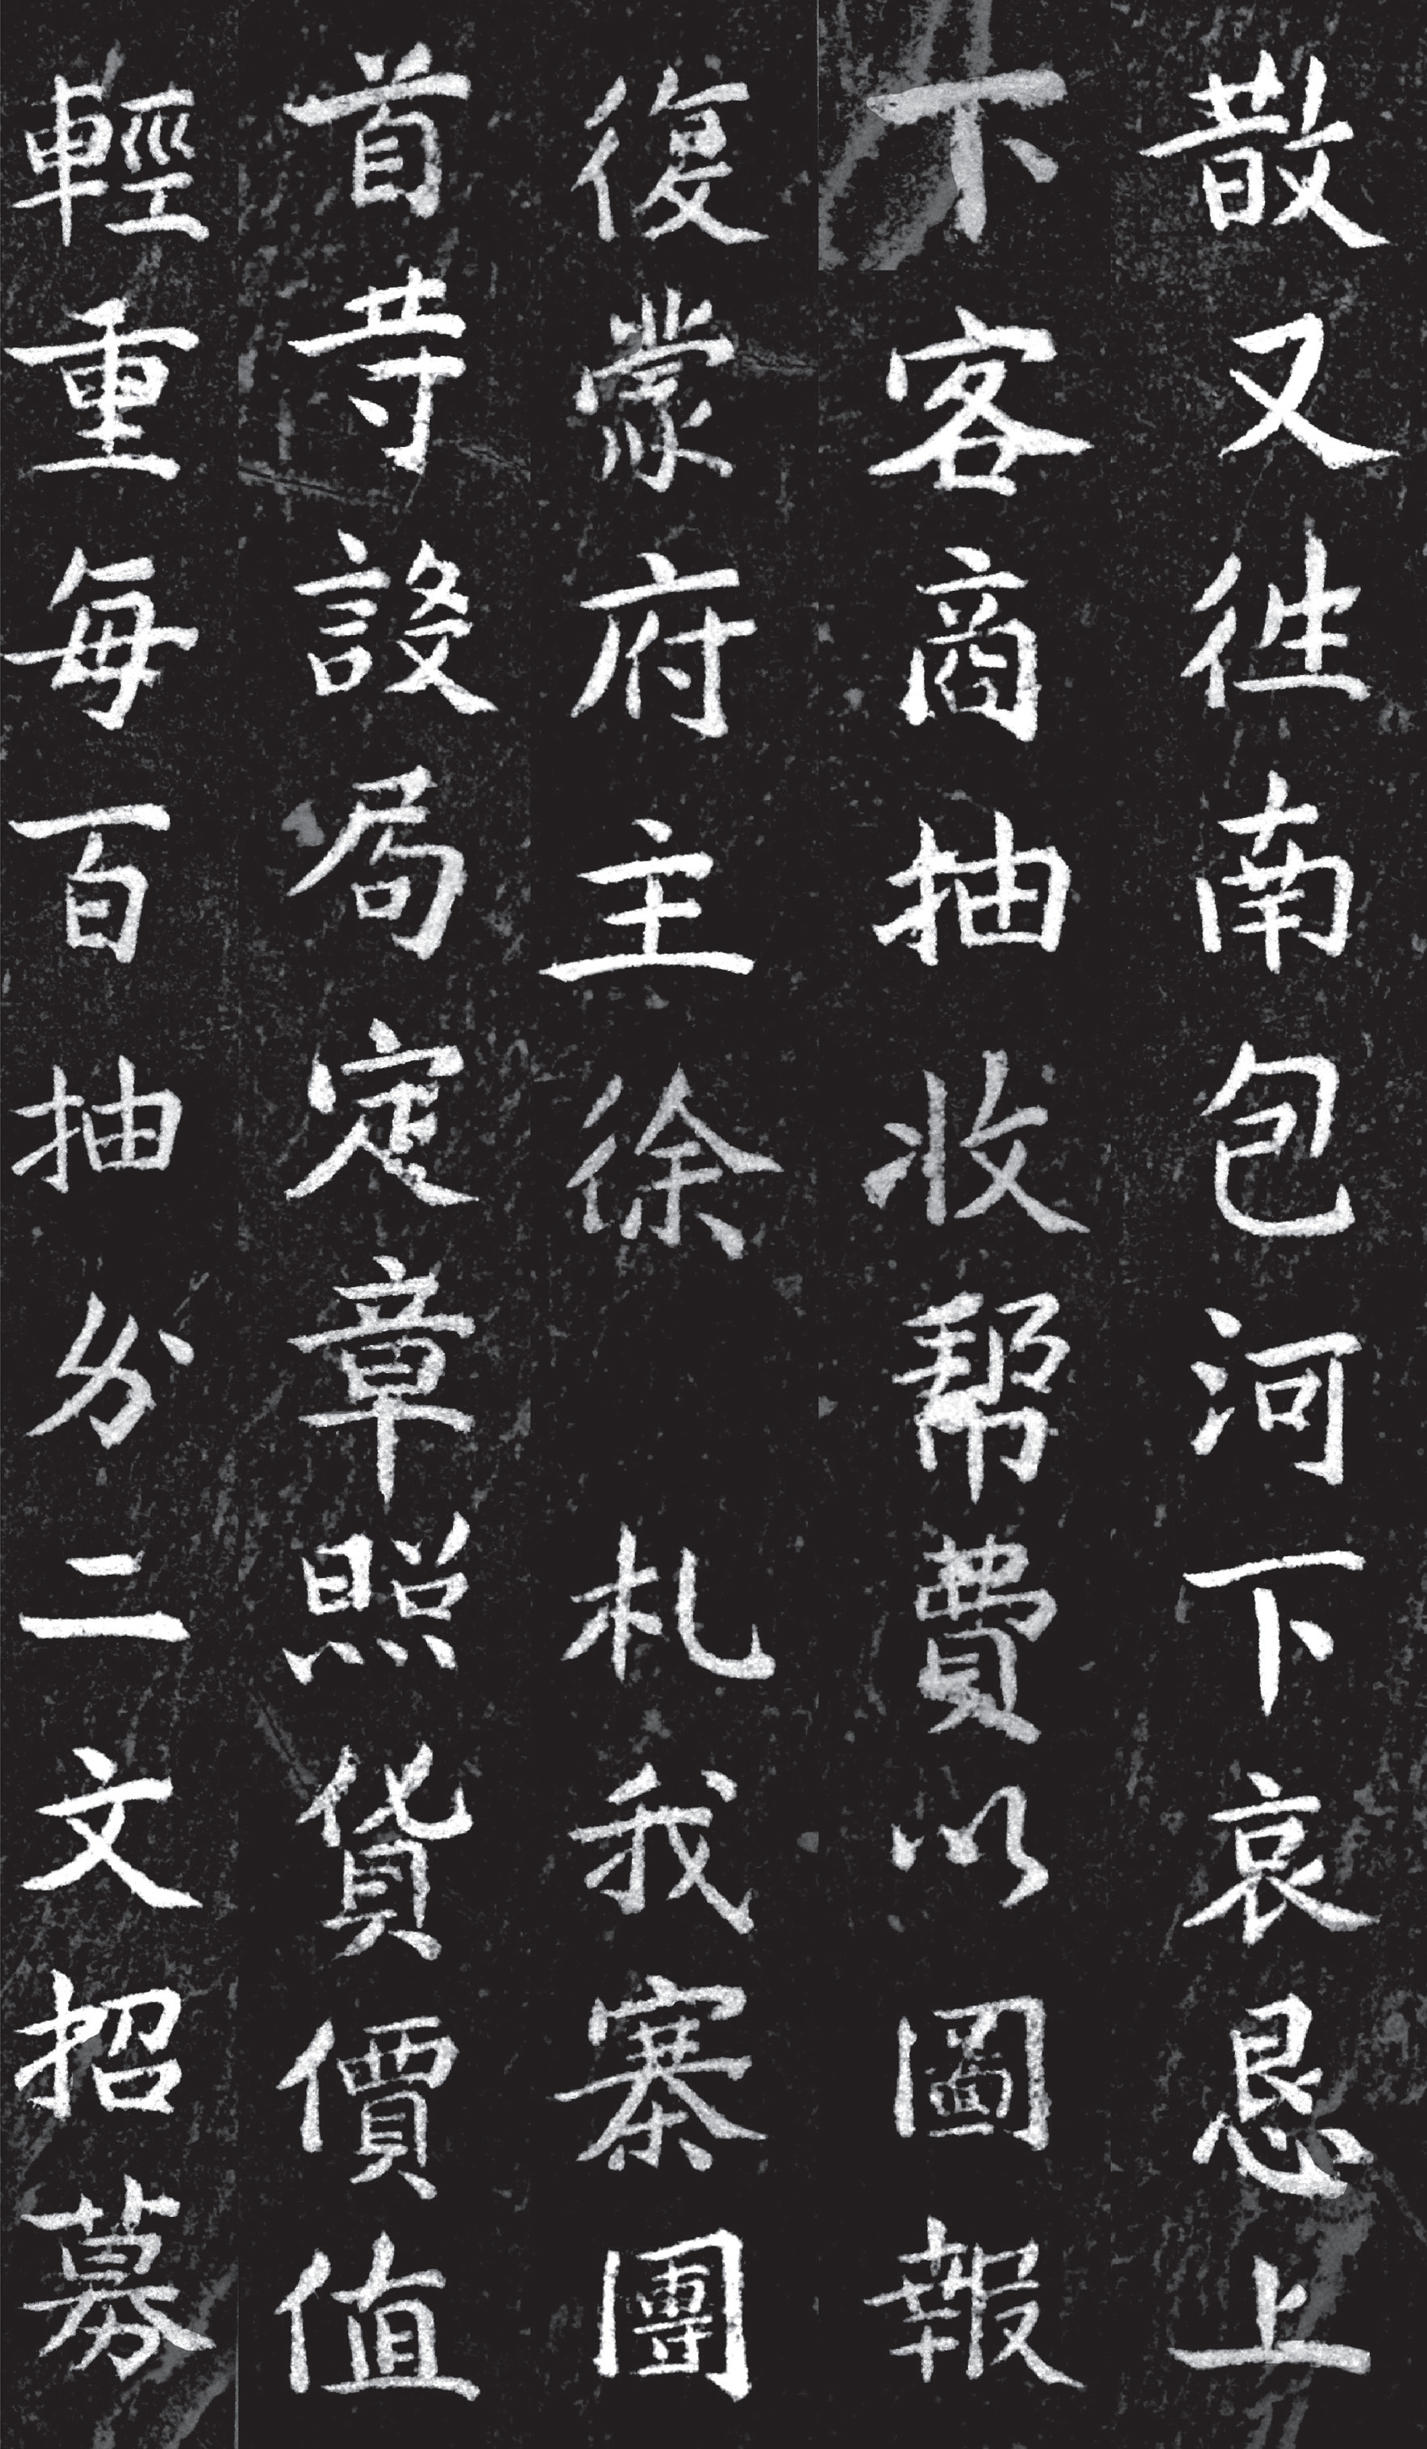 散又徃南包河下哀恳上
下客商抽收帮費以圖報
復蒙府主徐 札我寨團
首䓁設局定章照貨價值
輕重每百抽分二文招募